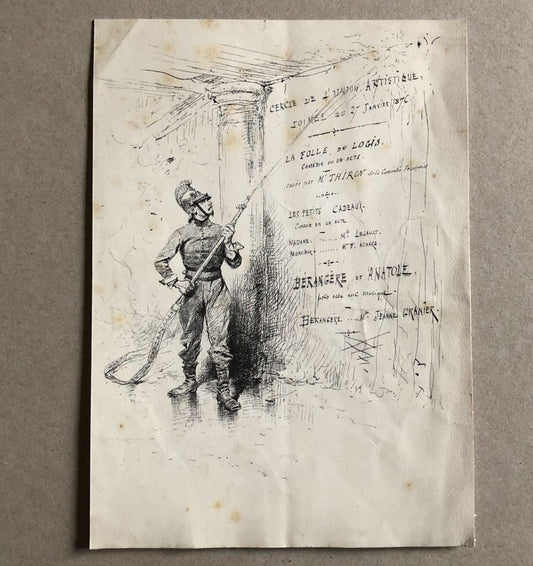 CERCLE DE L'UNION ARTISTIQUE.
SOIRÉE DU 27 JANVIER 1876
LA FOLLE DU LOGIS.
COMÉDIE EN UN ACTE.
PAR Mr THIRON de la Comédie Française
LES PETITS CADEAUX.
COMÉDIE EN UN ACTE.
MADAME Mlle LEGAULT.
MONSIEUR Mr F. ACHARD
BÉRANGÈRE ET ANATOLE.
MUSIQUE.
BÉRANGÈRE Mlle JEANNE GRANIER.